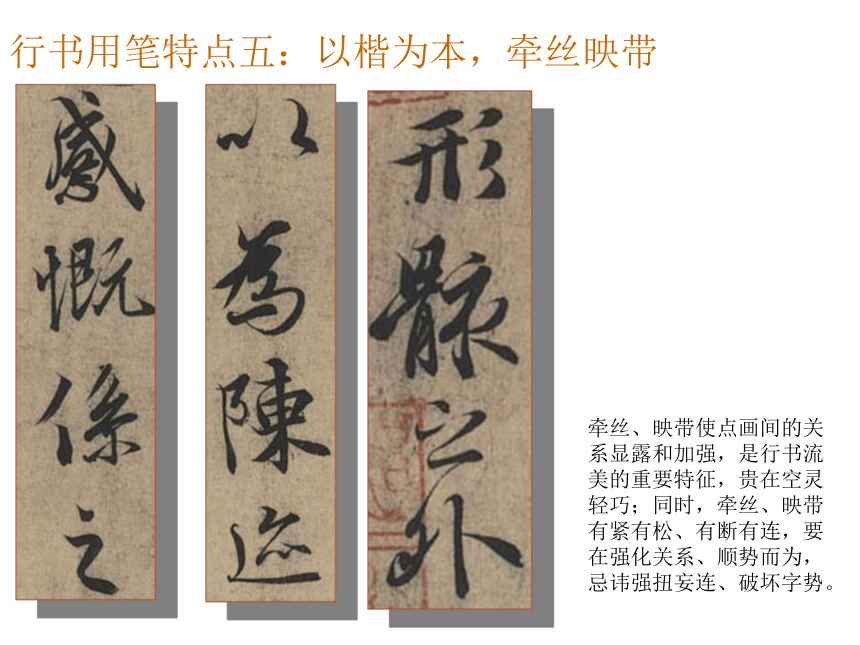 行书用笔特点五：以楷为本，牵丝映带
感慨係之
以為陳迹
形骸之外
牵丝、映带使点画间的关
系显露和加强，是行书流
美的重要特征，贵在空灵
轻巧；同时，牵丝、映带
有紧有松、有断有连，要
在强化关系、顺势而为，
忌讳强扭妄连、破坏字势。